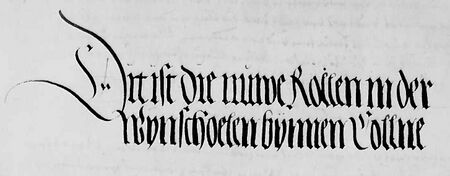 Ditt ist die nuwe Rollen in der
Wynschoelen bynnen Collne